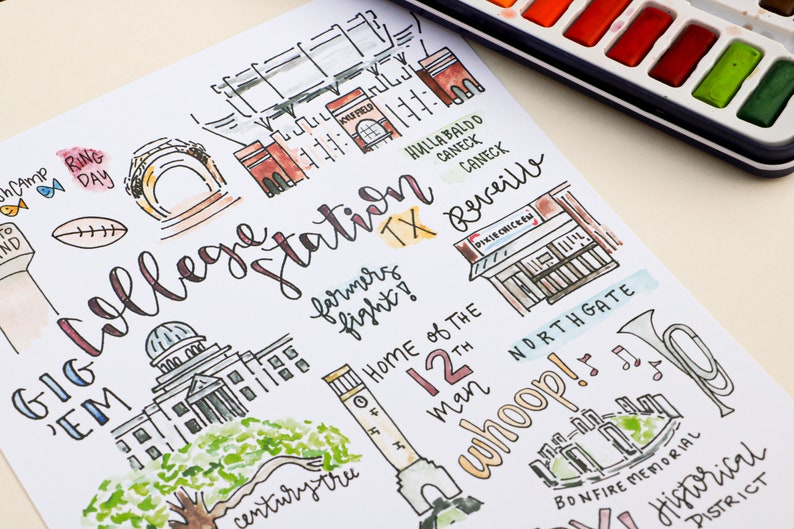 RING
DAY
KYLE FIELD
HULLABALOO
CANECK
CANECK
Reveille
College
Station
TX
DIXIE CHICKEN
farmers
fight!
NORTHGATE
GIG
'EM
HOME OF THE
12TH
man
whoop!
BONFIRE MEMORIAL
century tree
Historical
DISTRICT